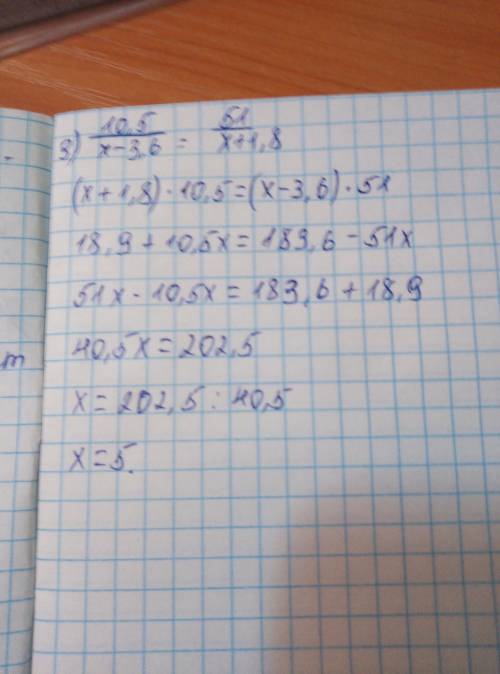 3) 10,5 / x-3,6 = 51 / x+1,8
(x+1,8)·10,5=(x-3,6)·51
18,9+10,5x=183,6-51x
51x-10,5x=183,6+18,9
40,5x=202,5
x=202,5:40,5
x=5.
m